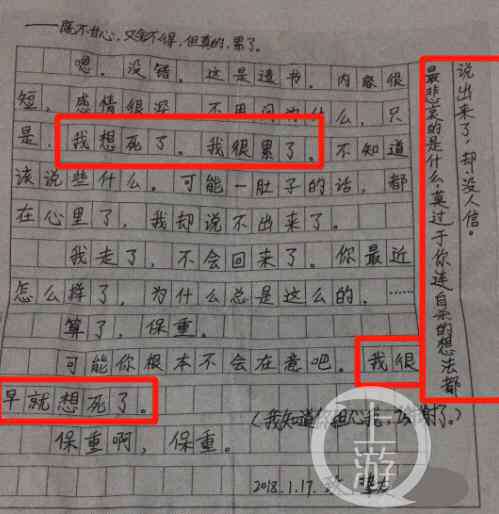 ——既不甘心，又舍不得，但真的，累了。
嗯。没错。这是遗书。内容很
短，感情很深。不用问为什么，只
是，我想死了。我很累了。不知道
该说些什么。可能一肚子的话，都
在心里了，我却说不出来了。
我走了，不会回来了。你最近
怎么样了，为什么总是这么的，……
算了，保重。
可能你根本不会在意吧。我很
早就想死了。
(我知道你担心我，谢谢了。)
保重啊，保重。
2018.1.17.
最悲哀的是什么，莫过于你连自杀的想法都
说出来了，却没人信。
上游